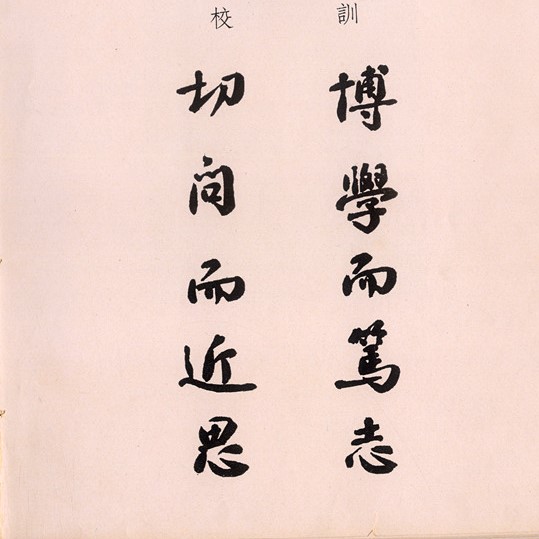 校訓
博學而篤志
切問而近思